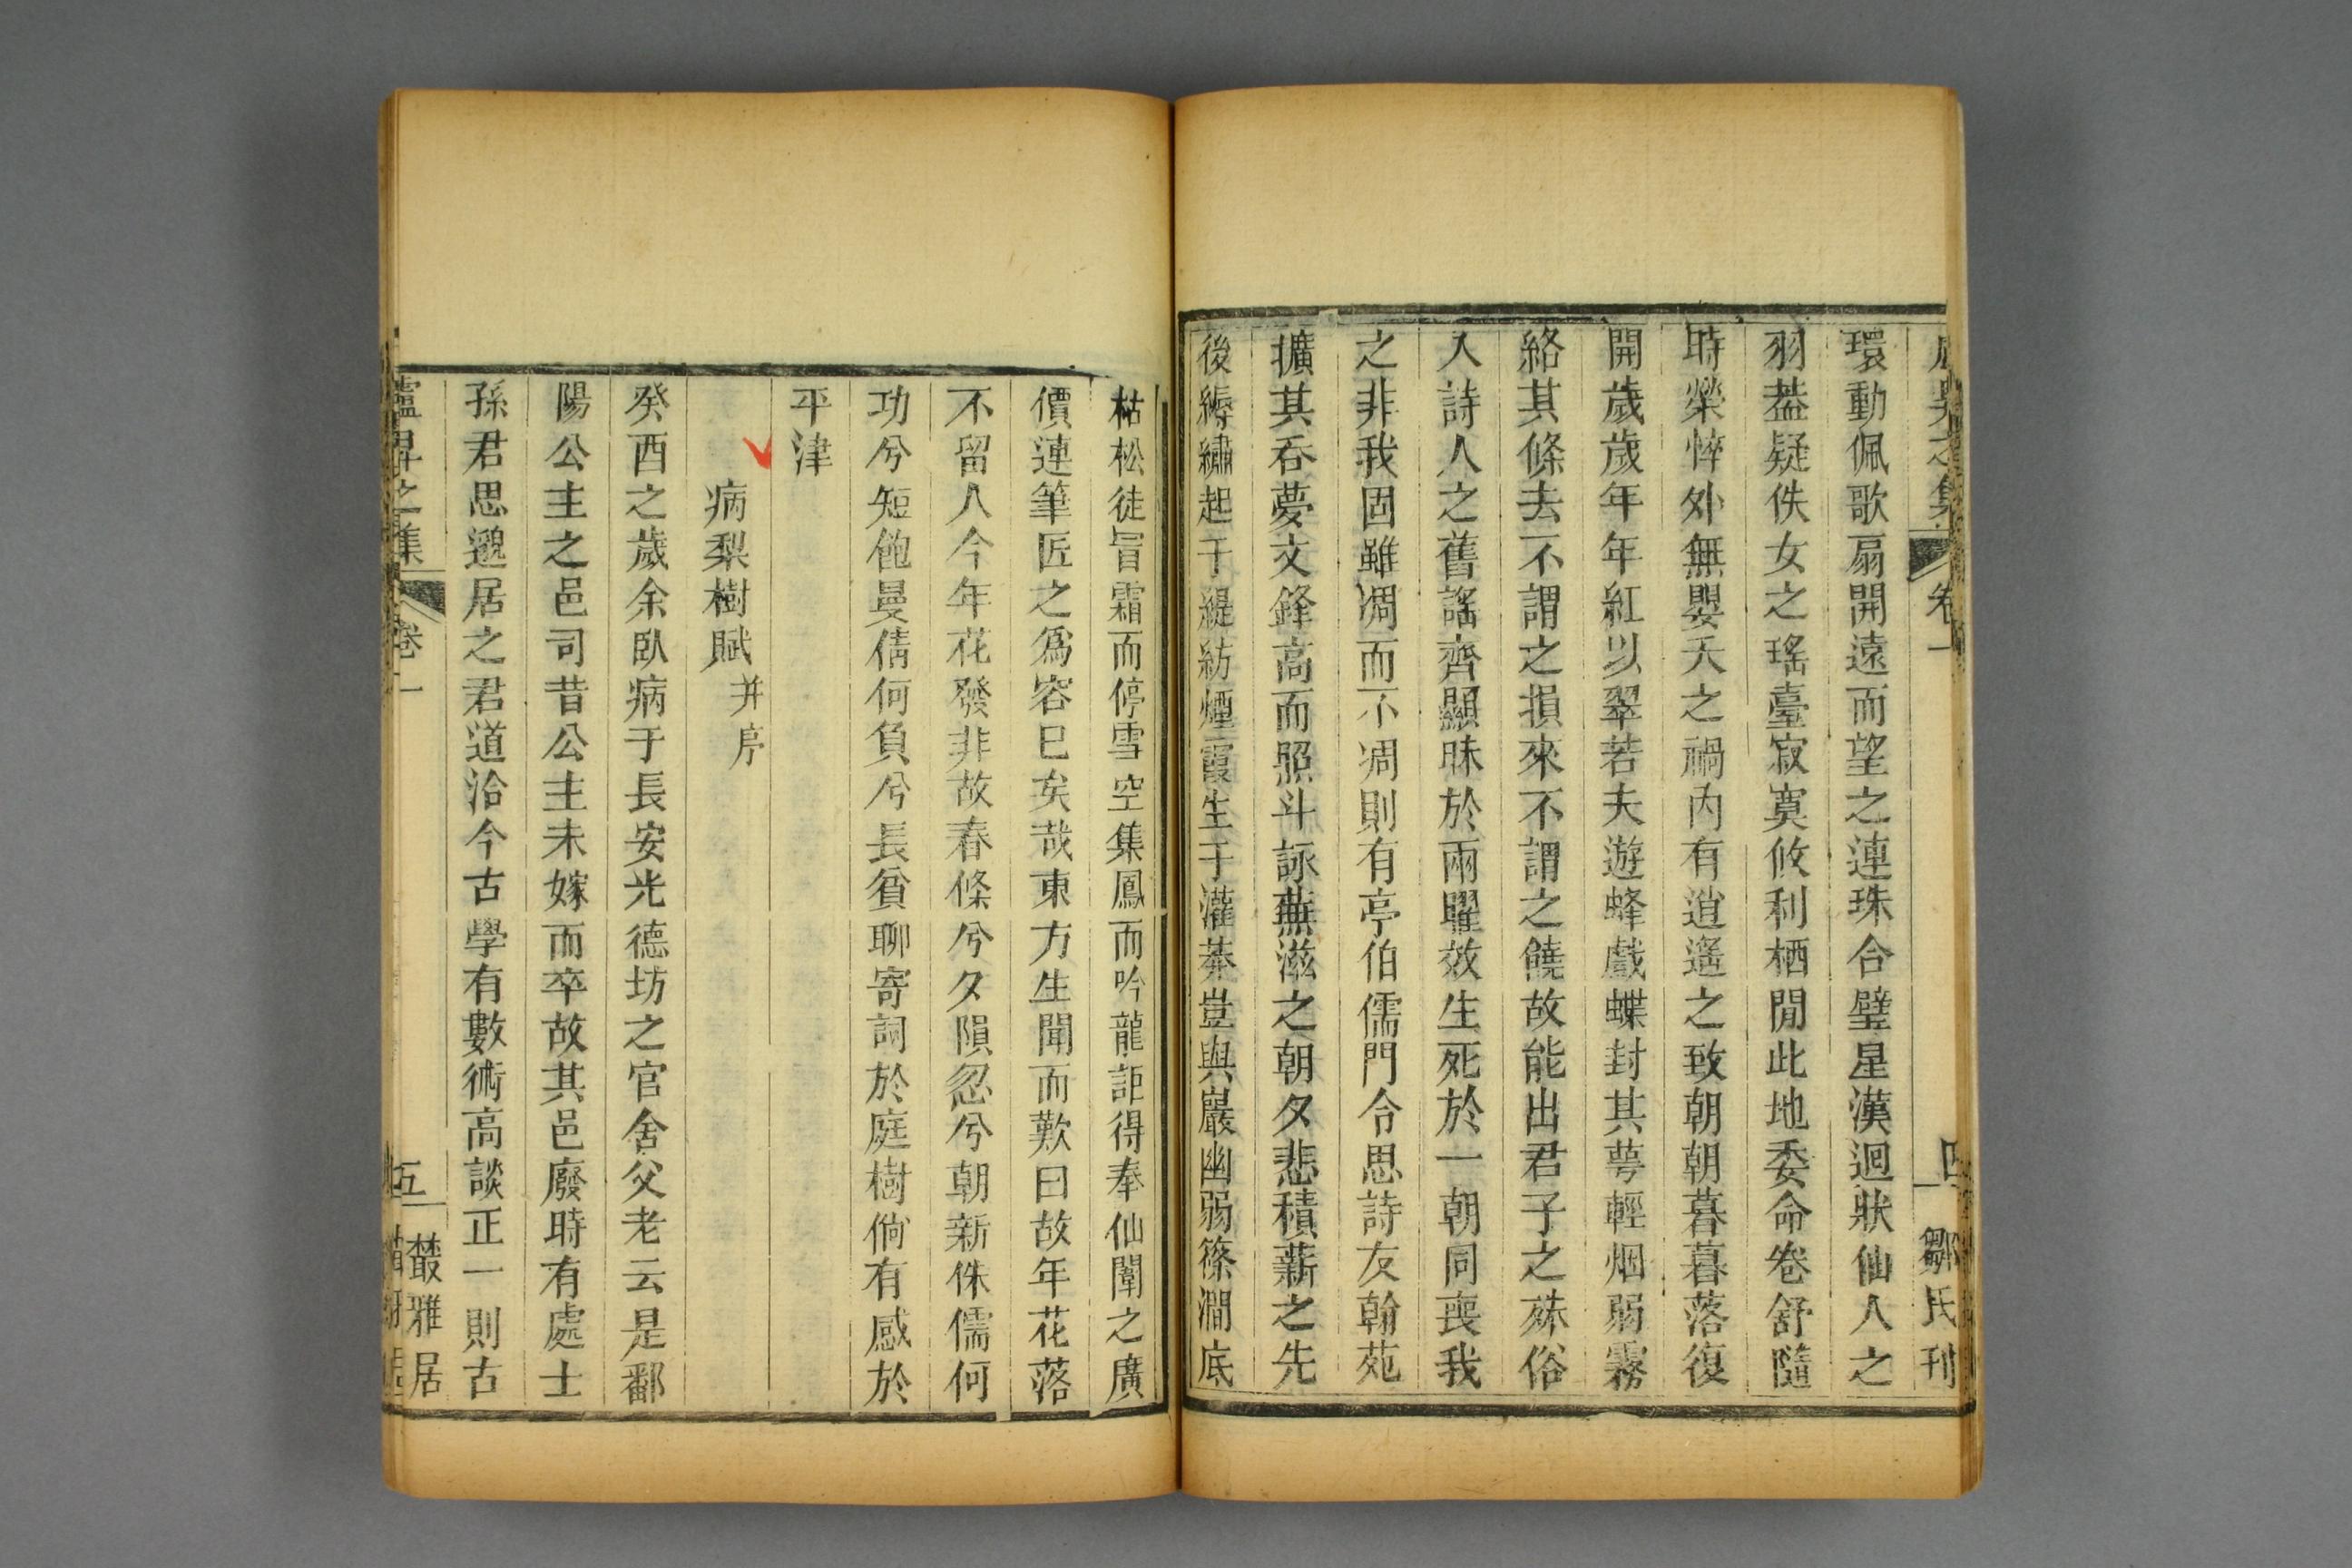 環動佩歌扇開遠而望之連珠合璧星漢迴狀仙人之
羽葢疑佚女之瑤臺寂寞攸利栖閒此地委命卷舒隨
時榮悴外無嬰夭之禍內有逍遙之致朝朝暮暮落復
開歲歲年年紅以翠若夫遊蜂戲蝶封其萼輕烟弱霧
絡其條去不謂之損來不謂之饒故能出君子之殊俗
入詩人之舊謠齊顯昧於兩曜效生死於一朝同喪我
之非我固雖凋而不凋則有亭伯儒門令思詩友翰苑
擴其吞夢文鋒高而照斗詠蕪滋之朝夕悲積薪之先
後縟繡起于緹紡煙霞生于灌莽豈與巖幽弱篠澗底
之集 卷一 四 鄒氏刊
枯松徒冒霜而停雪空集鳳而吟龍詎得奉仙闈之廣
價連筆匠之爲容已矣哉東方生聞而歎曰故年花落
不留人今年花發非故春條兮夕隕忽兮朝新侏儒何
功兮短飽曼倩何負兮長貧聊寄詞於庭樹倘有感於
平津
病梨樹賦 并序
癸酉之歲余臥病于長安光德坊之官舍父老云是鄱
陽公主之邑司昔公主未嫁而卒故其邑廢時有處士
孫君思邈居之君道洽今古學有數術高談正一則古
盧昇之集 卷一 五 叢雅居